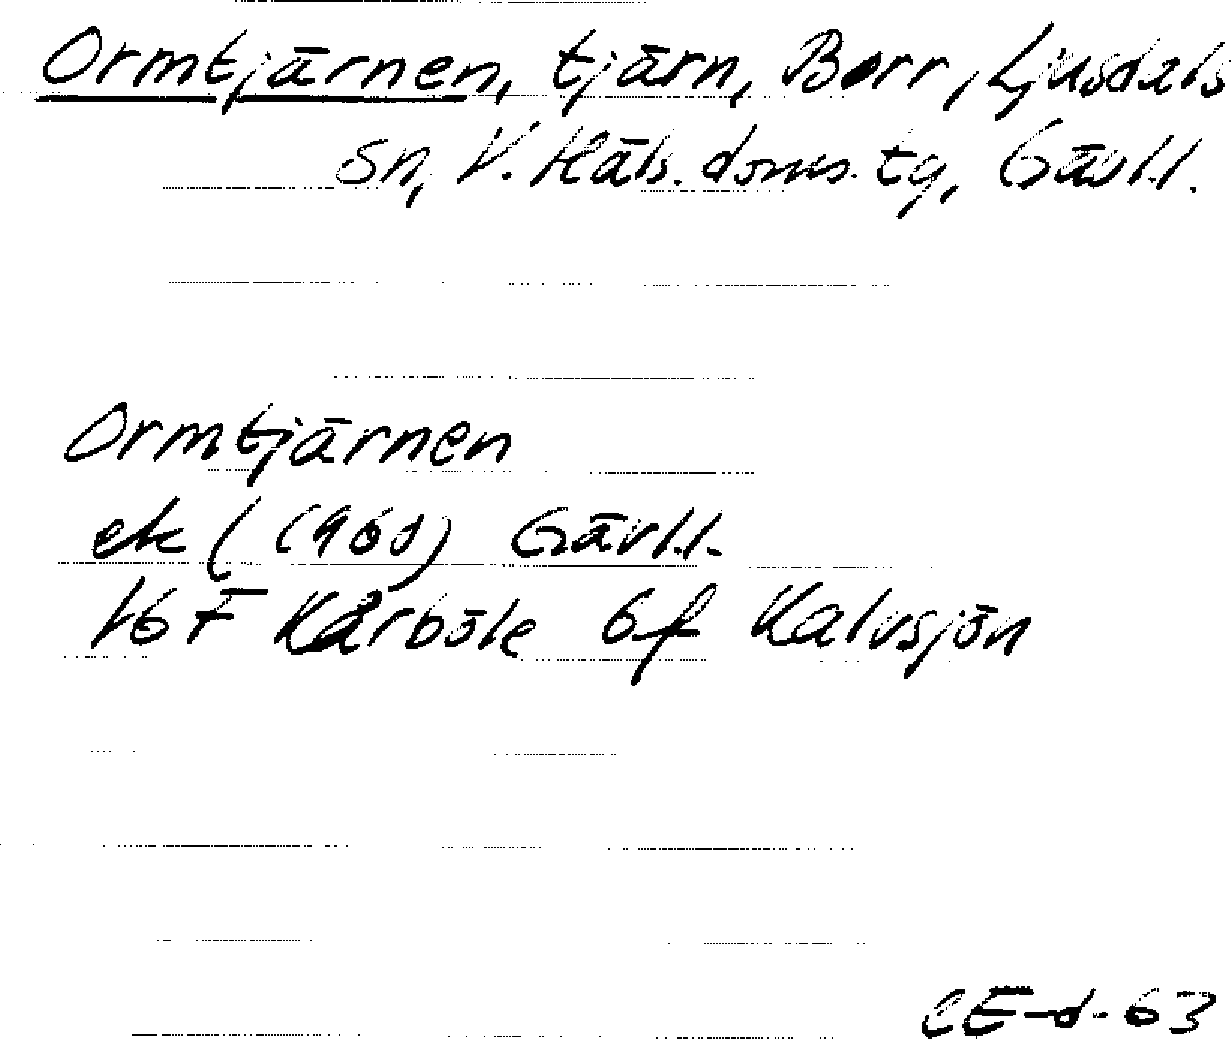 Ormtjärnen, tjärn, Borr, Ljusdals
sn, V. Häls. doms. tg, Gävl.l.
Ormtjärnen
ek (1960) Gävl.l.
16 F Kårböle 6f Kalvsjön
CE-d-63